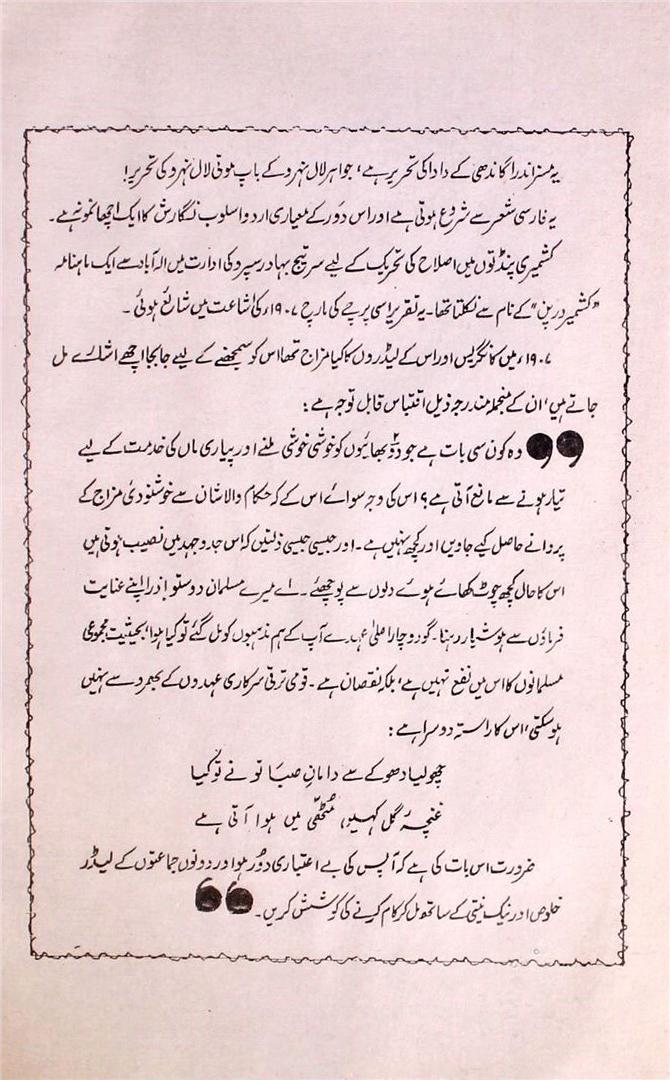 یہ مسز اندرا گاندھی کے دادا کی تحریر ہے، جواہر لال نہرو کے باپ موتی لال نہرو کی تحریر!
یہ فارسی شعر سے شروع ہوتی ہے اور اس دَور کے معیاری اردو اسلوب نگارش کا ایک اچھا نمونہ ہے۔
کشمیری پنڈتوں میں اصلاح کی تحریک کے لیے سر تیج بہادر سپرو کی ادارت میں الہ آباد سے ایک ماہنامہ
”کشمیر درپن“ کے نام سے نکلتا تھا۔ یہ تقریر اسی پرچے کی مارچ ۱۹۰۷ء کی اشاعت میں شائع ہوئی۔
۱۹۰۷ء میں کانگریس اور اس کے لیڈروں کا کیا مزاج تھا اس کو سمجھنے کے لیے جابجا اچھے اشارے مل
جاتے ہیں، ان کے منجملہ مندرجہ ذیل اقتباس قابل توجہ ہے:
”وہ کون سی بات ہے جو دو بھائیوں کو خوشی خوشی ملنے اور پیاری ماں کی خدمت کے لیے
تیار ہونے سے مانع آتی ہے؟ اس کی وجہ سوائے اس کے کہ حکام والا شان سے خوشنودیٔ مزاج کے
پروانے حاصل کیے جاویں اور کچھ نہیں ہے۔ اور جیسی جیسی ذلتیں کہ اس جدوجہد میں نصیب ہوتی ہیں
اس کا حال کچھ چوٹ کھائے ہوئے دلوں سے پوچھئے۔ اے میرے مسلمان دوستو! ذرا اپنے عنایت
فرماؤں سے ہوشیار رہنا۔ گو دو چار اعلیٰ عہدے آپ کے ہم مذہبوں کو مل گئے تو کیا ہوا، بحیثیت مجموعی
مسلمانوں کا اس میں نفع نہیں ہے، بلکہ نقصان ہے۔ قومی ترقی سرکاری عہدوں کے بھروسے نہیں
ہوسکتی، اس کا راستہ دوسرا ہے:
چھولیا دھوکے سے دامانِ صبا تو نے تو کیا
غنچۂ گل کہیں، مُٹھّی میں ہوا آتی ہے
ضرورت اس بات کی ہے کہ آپس کی بے اعتباری دُور ہو اور دونوں جماعتوں کے لیڈر
خلوص اور نیک نیتی کے ساتھ مل کر کام کرنے کی کوشش کریں۔“